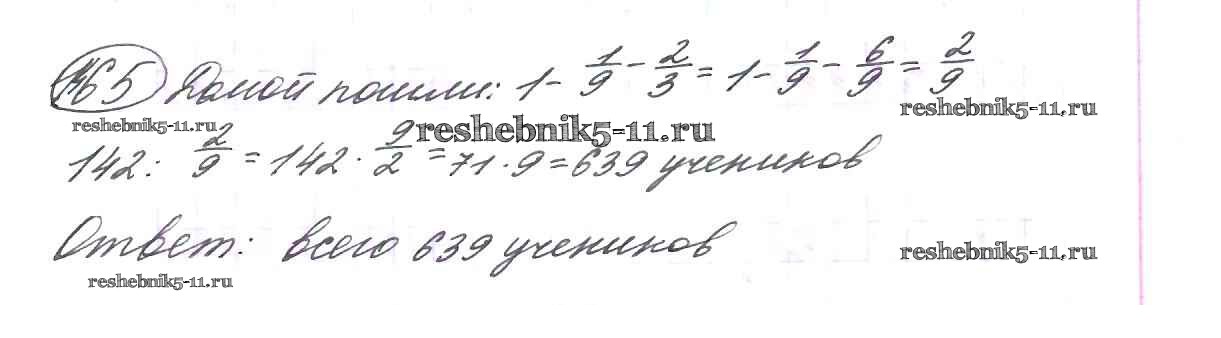 №65 Домой пошли: 1 - 1/9 - 2/3 = 1 - 1/9 - 6/9 = 2/9
reshebnik5-11.ru
reshebnik5-11.ru
reshebnik5-11.ru
142 : 2/9 = 142 · 9/2 = 71 · 9 = 639 учеников
Ответ: всего 639 учеников
reshebnik5-11.ru
reshebnik5-11.ru